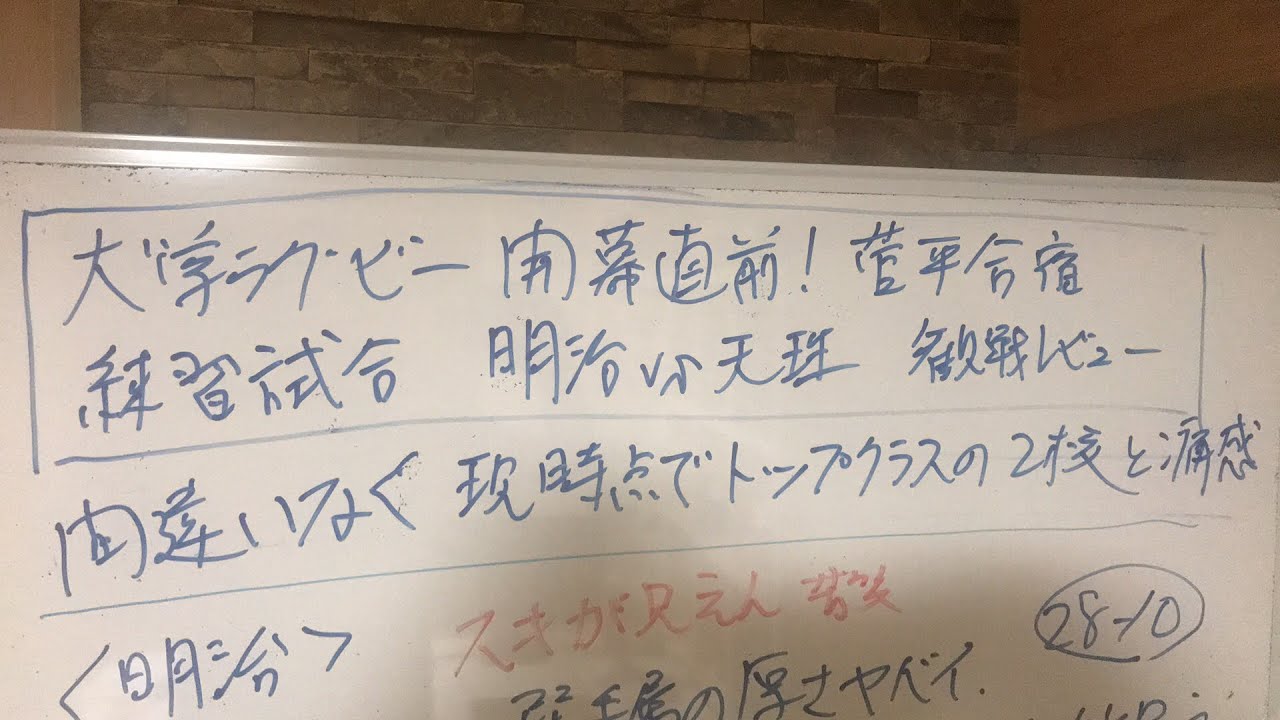 大学ラグビー 開幕直前! 菅平合宿
練習試合 明治 vs 天理 観戦レビュー
間違いなく 現時点でトップクラスの2校と痛感
スキが見えん
28-10
<明治>
の厚さヤベイ.